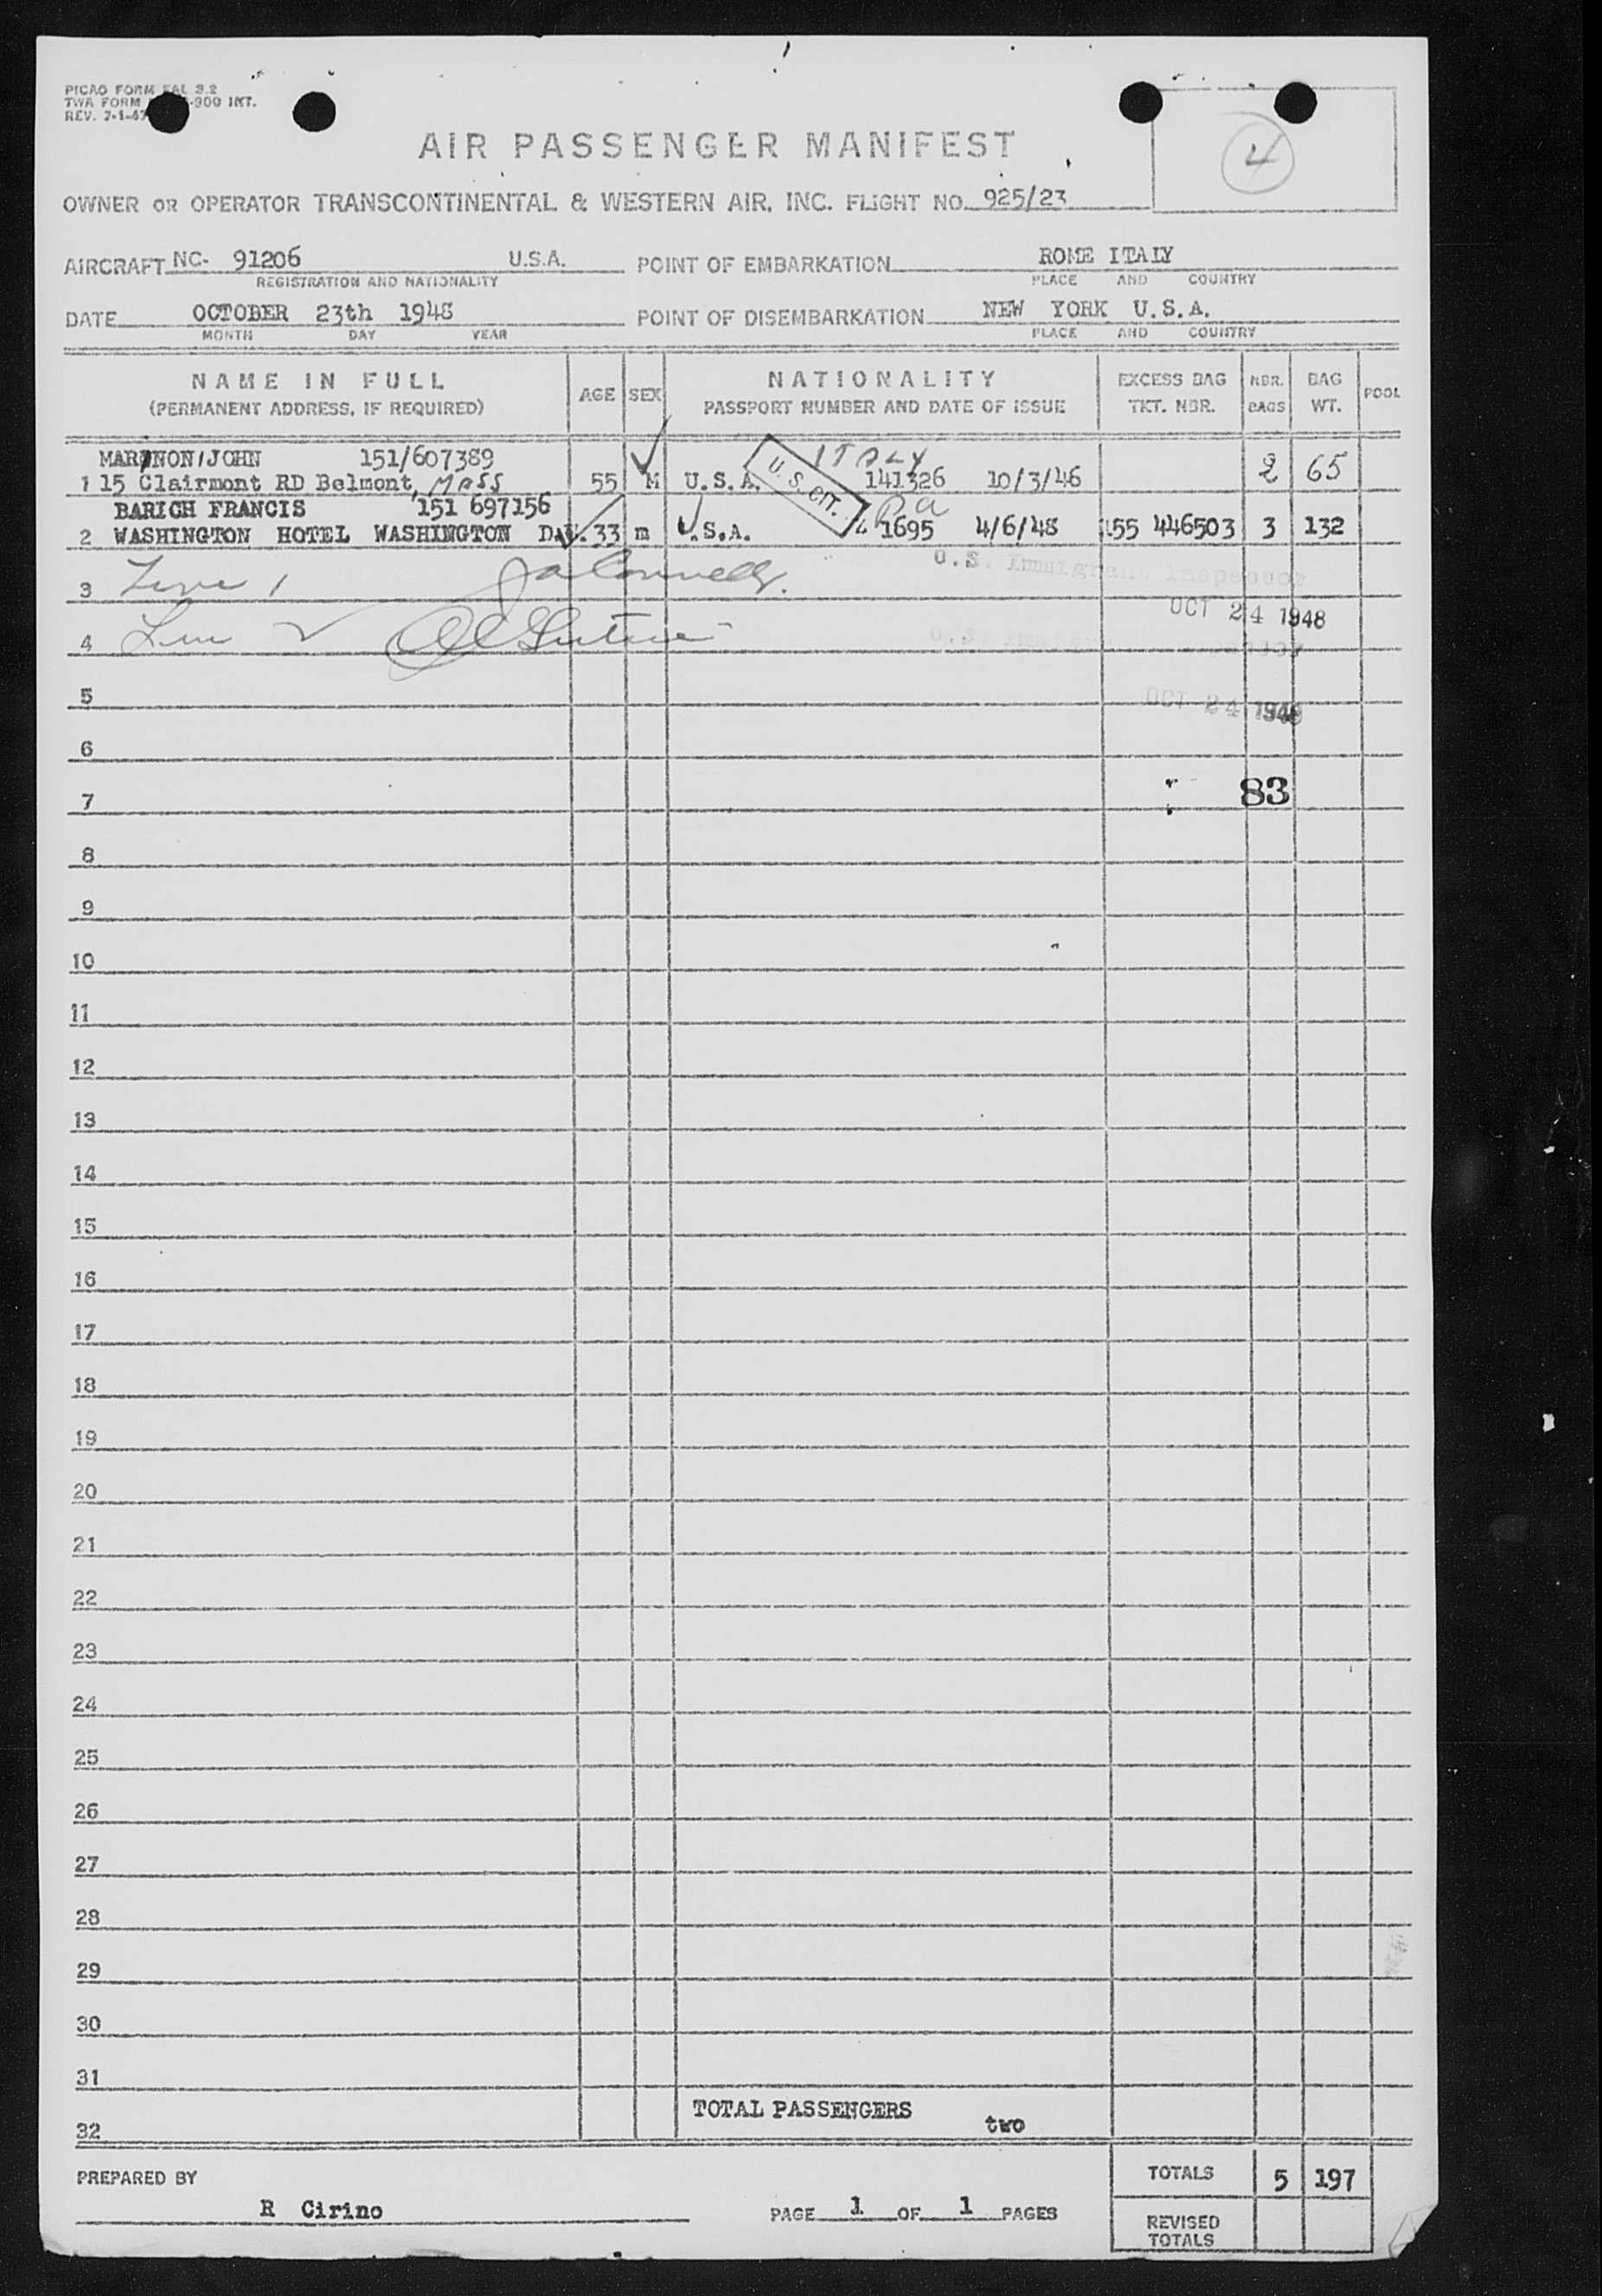 PICAO FORM FAL 3.2
TWA FORM -900 INT.
REV. 7-1-47
4
AIR PASSENGER MANIFEST
OWNER OR OPERATOR TRANSCONTINENTAL & WESTERN AIR, INC. FLIGHT NO. 925/23
AIRCRAFT NC- 91206 U.S.A. POINT OF EMBARKATION ROME ITALY
REGISTRATION AND NATIONALITY PLACE AND COUNTRY
DATE OCTOBER 23th 1948 POINT OF DISEMBARKATION NEW YORK U.S.A.
MONTH DAY YEAR PLACE AND COUNTRY
NAME IN FULL AGE SEX NATIONALITY EXCESS BAG NBR. BAG POOL
(PERMANENT ADDRESS, IF REQUIRED) PASSPORT NUMBER AND DATE OF ISSUE TKT. NBR. BAGS WT.
JOHN 151/607389 ITALY
1 15 Clairmont RD Belmont, Mass 55 M U.S.A. U.S. CIT. 141326 10/3/46 2 65
BARICH FRANCIS 151 697156 Pa
2 WASHINGTON HOTEL WASHINGTON 33 m U.S.A. 1695 4/6/48 155 446503 3 132
U.S. Immigrant Inspector
3 Line 1
OCT 24 1948
4 Line 2
5 OCT 24 1948
6
7 83
8
9
10
11
12
13
14
15
16
17
18
19
20
21
22
23
24
25
26
27
28
29
30
31
TOTAL PASSENGERS two
32
PREPARED BY TOTALS 5 197
R Cirino PAGE 1 OF 1 PAGES
REVISED
TOTALS